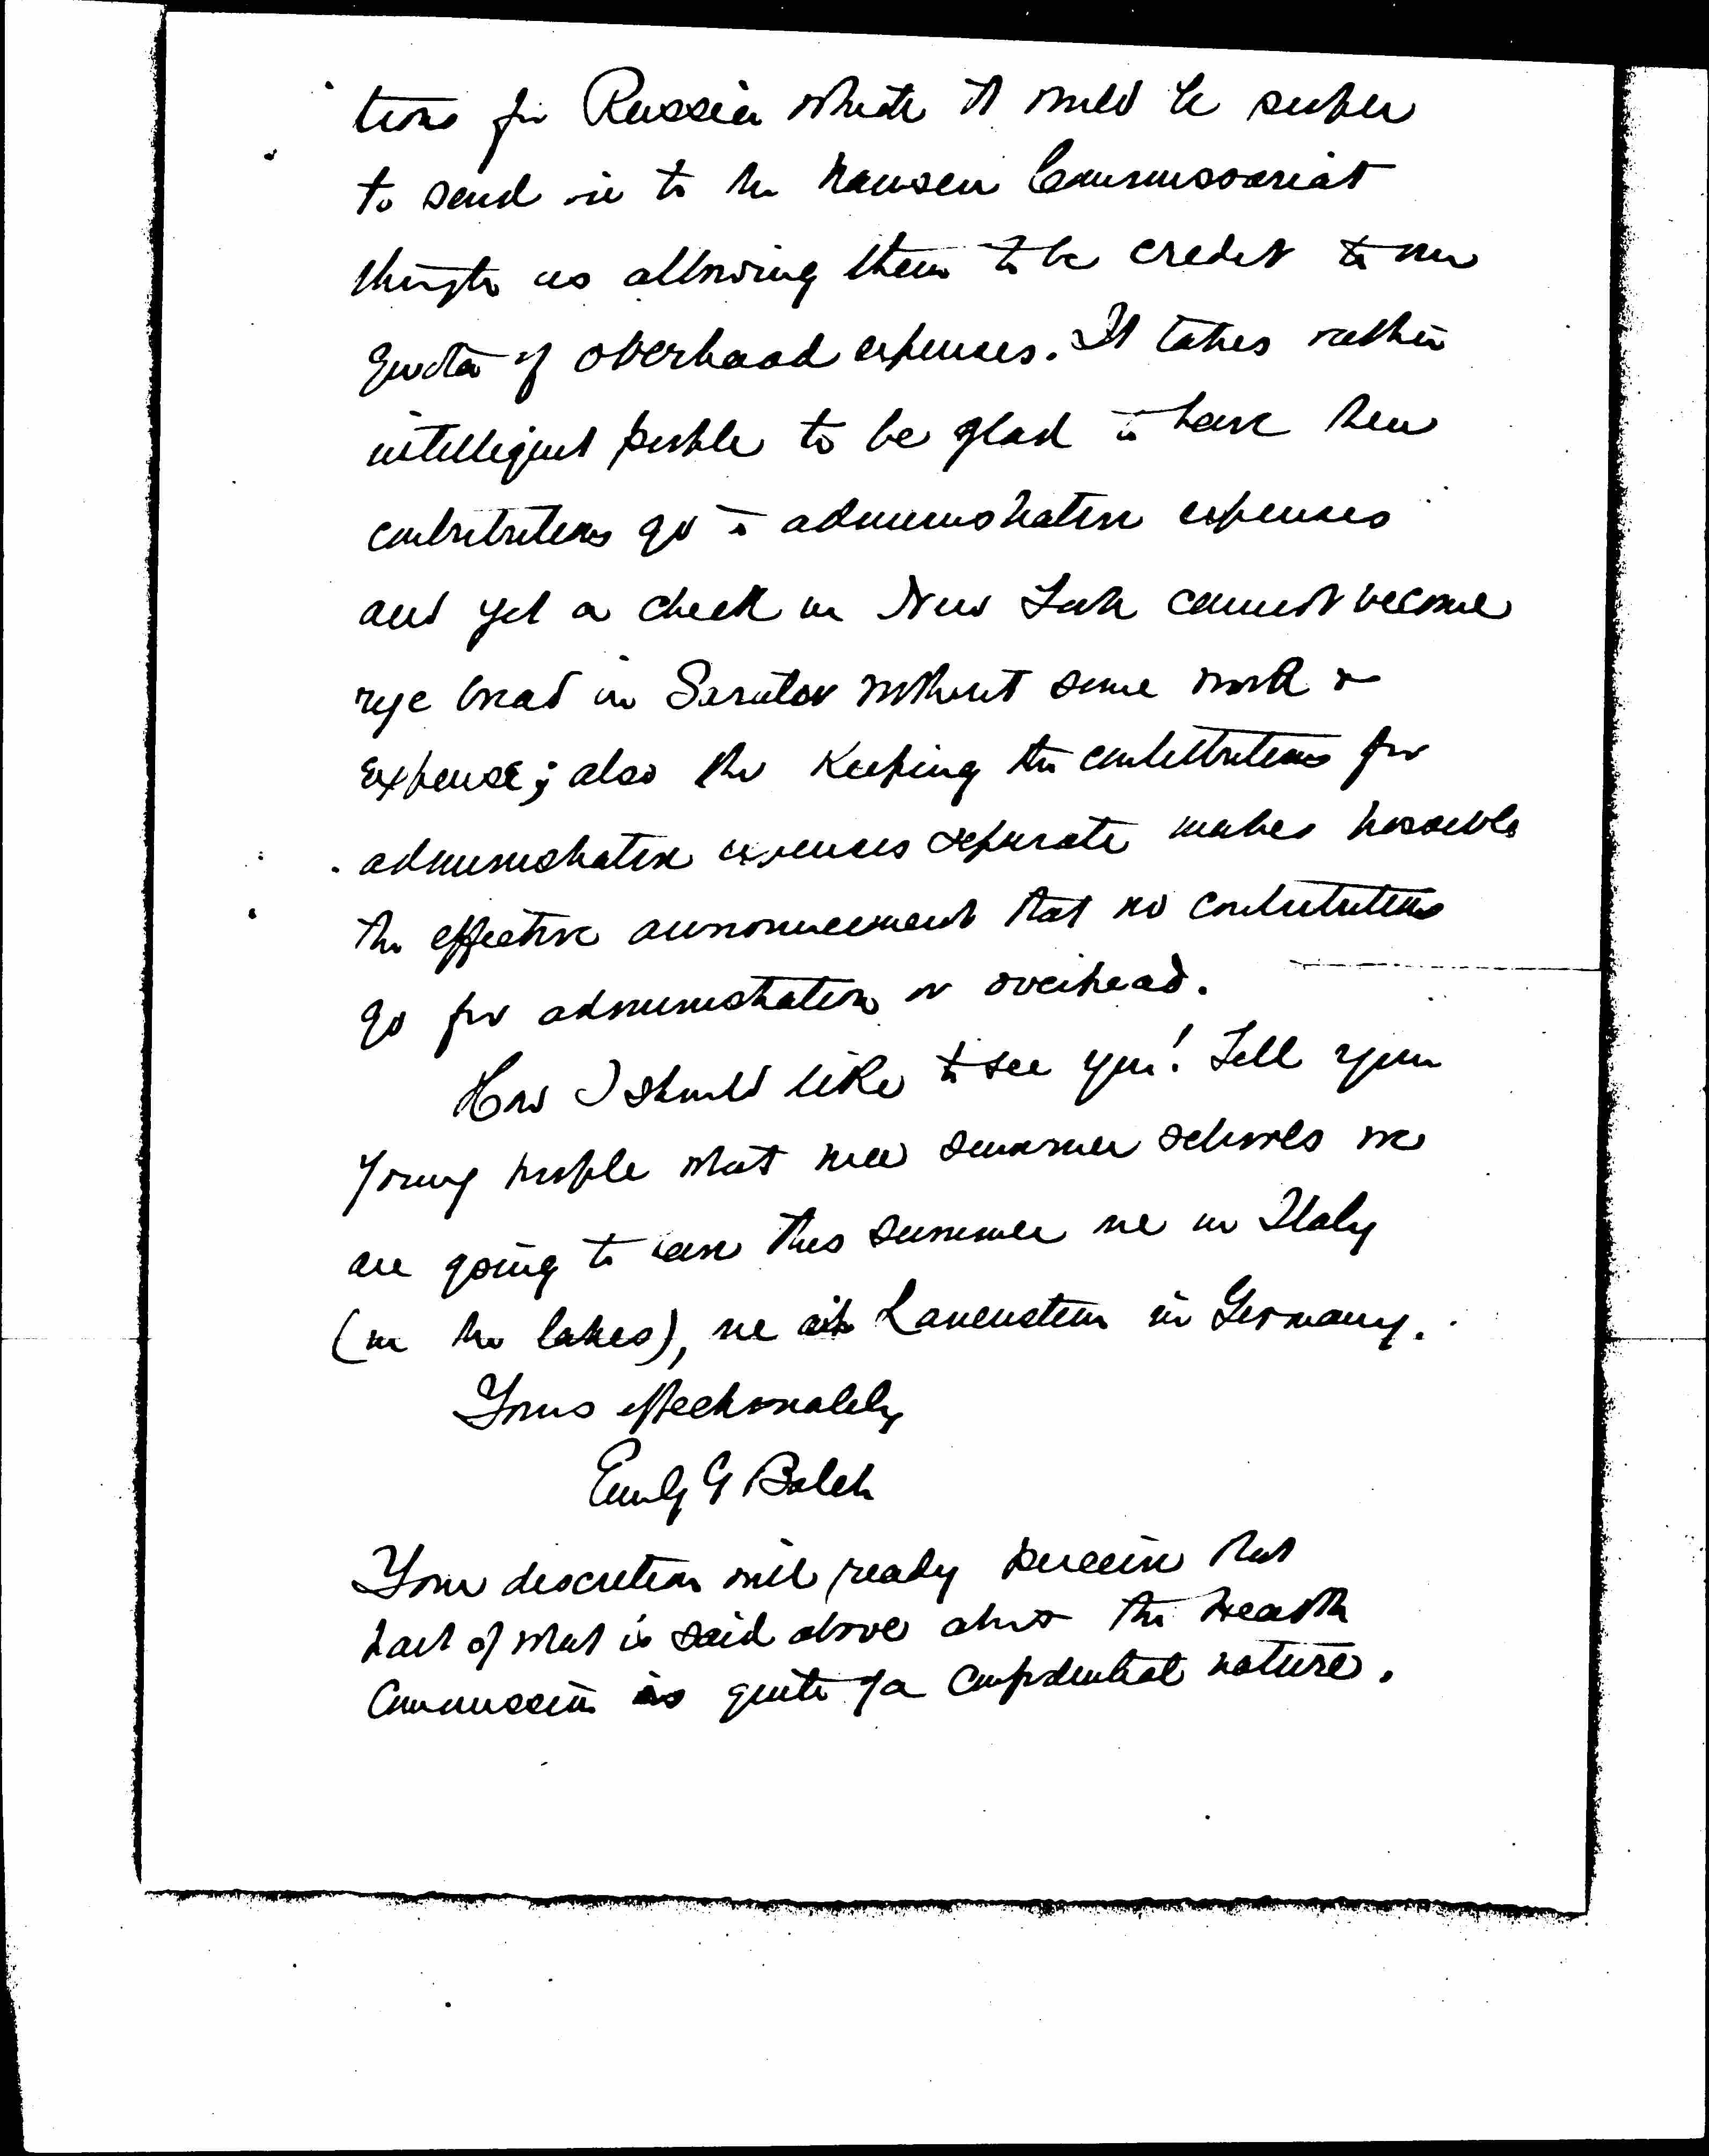 tions for Russia which it would be proper
to send in to the Nansen Commissariat
through us allowing them to be credit to our
quota of overhead expenses. It takes rather
intelligent people to be glad to have their
contributions go to administration expenses
and yet a check in New York cannot become
rye bread in Saratov without some work &
expense; also the keeping the contributions for
administration expenses separate makes possible
the effective announcement that no contributions
go for administration or overhead.
How I should like to see you! Tell your
young people what nice summer schools we
are going to have this summer one in Italy
(on the lakes), one at Lauenstein in Germany.
Yours affectionately
Emily G Balch
Your discretion will ready perceive that
part of what is said above about the
Commission is quite of a confidential nature.